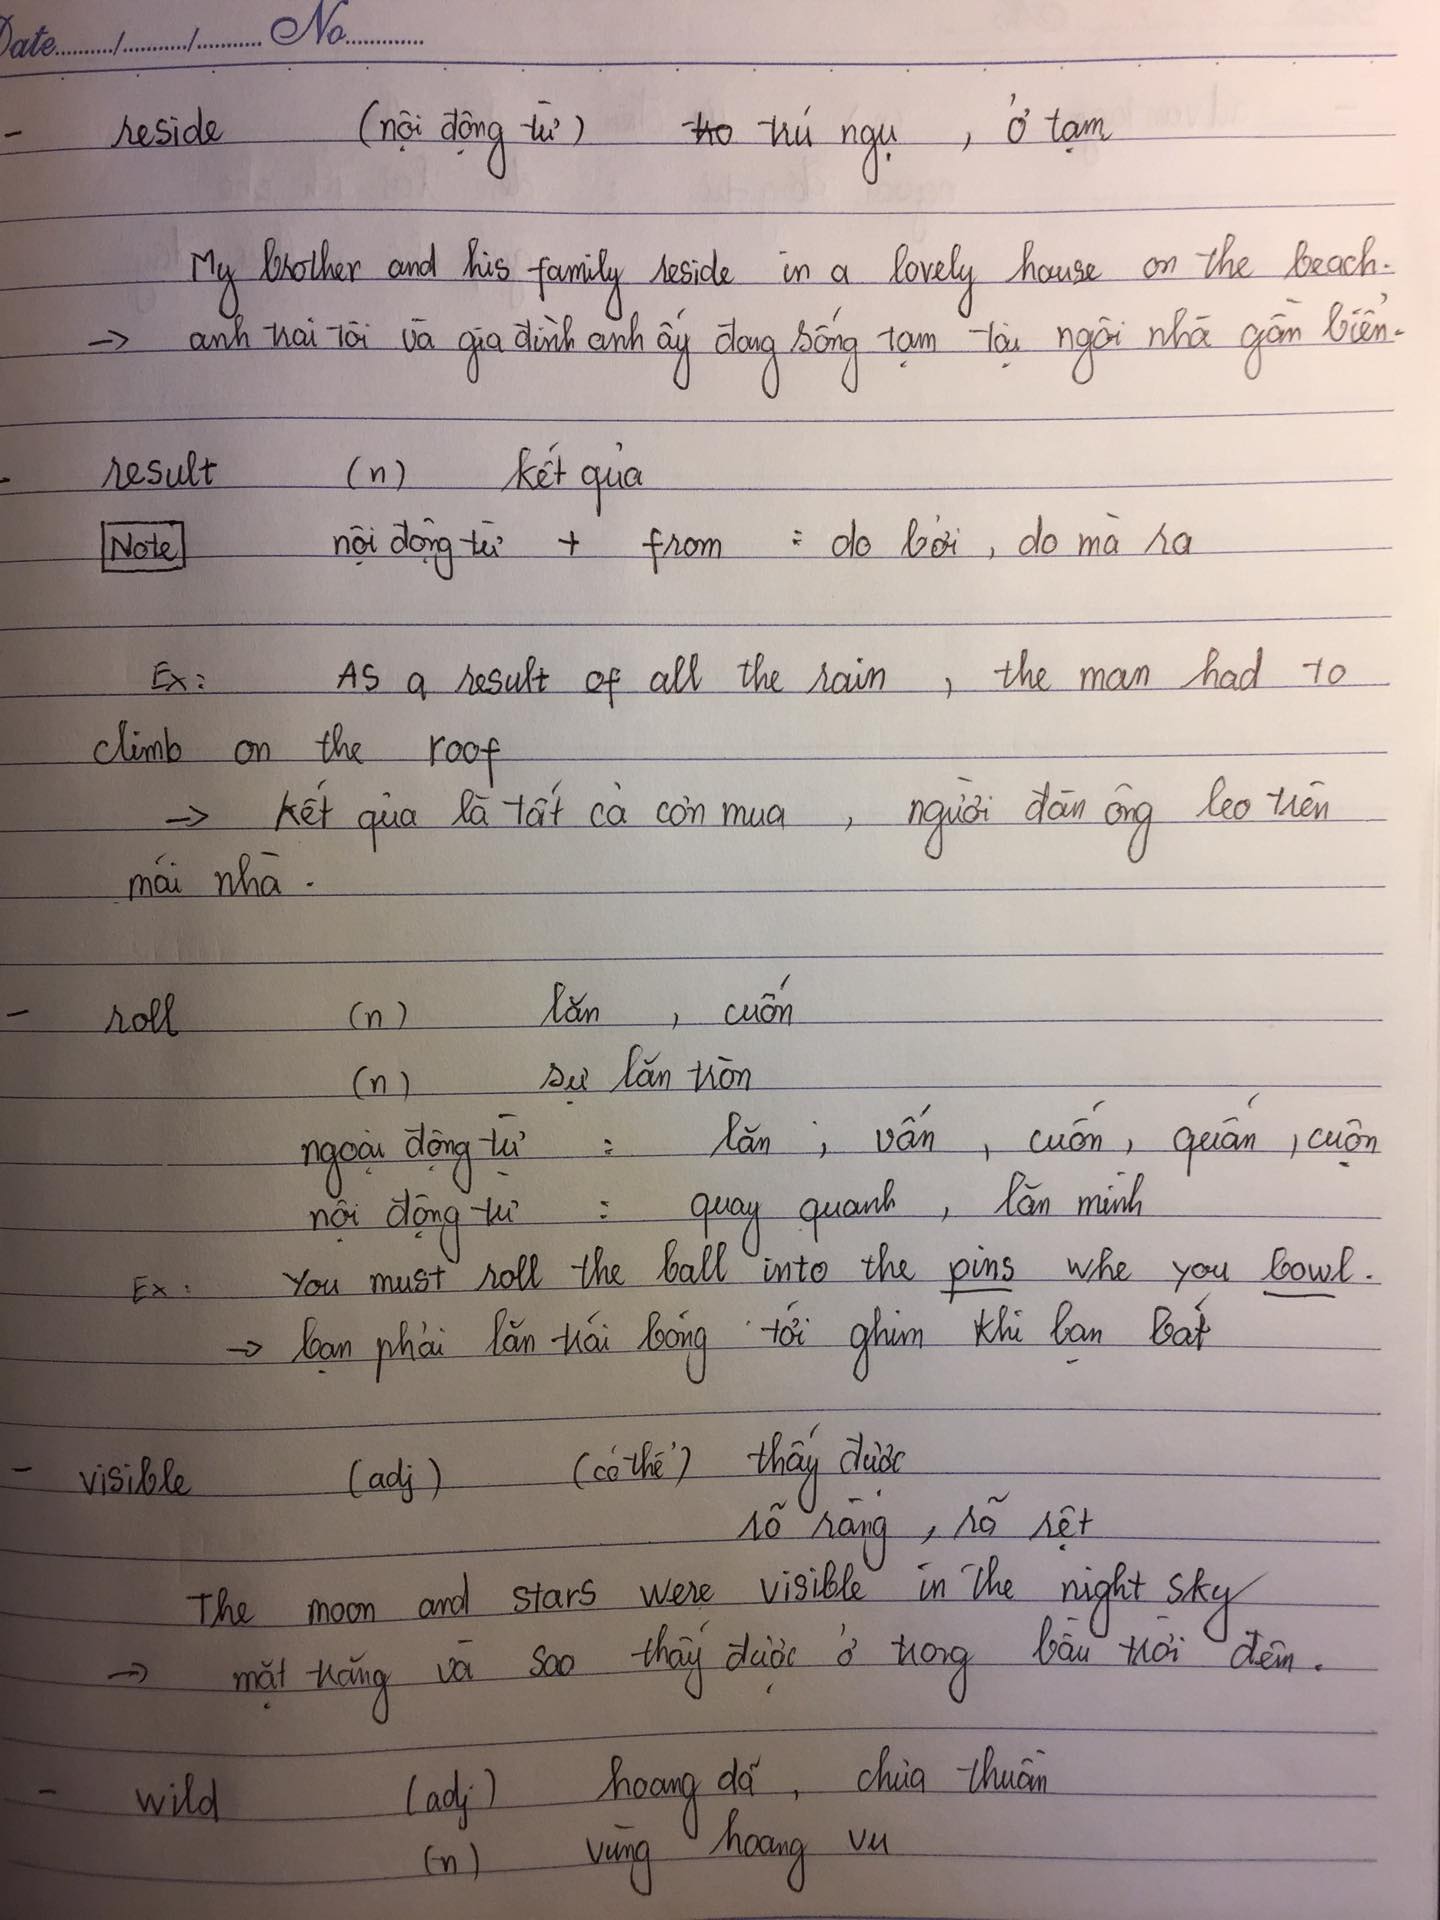 Date........../........../.......... No............
- reside (nội động từ) tro trú ngụ , ở tạm
My brother and his family reside in a lovely house on the beach.
→ anh trai tôi và gia đình anh ấy đang sống tạm tại ngôi nhà gần biển.
- result (n) kết quả
Note nội động từ + from : do bởi , do mà ra
Ex: As a result of all the rain , the man had to
climb on the roof
→ kết quả là tất cả cơn mưa , người đàn ông leo trên
mái nhà .
- roll (n) lăn , cuốn
(n) sự lăn tròn
ngoại động từ : lăn , vấn , cuốn , quấn , cuộn
nội động từ : quay quanh , lăn mình
Ex: You must roll the ball into the pins whe you bowl .
→ bạn phải lăn trái bóng tới ghim khi bạn bắt
- visible (adj) (có thể) thấy được
rõ ràng , rõ rệt
The moon and stars were visible in the night sky
→ mặt trăng và sao thấy được ở trong bầu trời đêm .
- wild (adj) hoang dã , chưa thuần
(n) vùng hoang vu